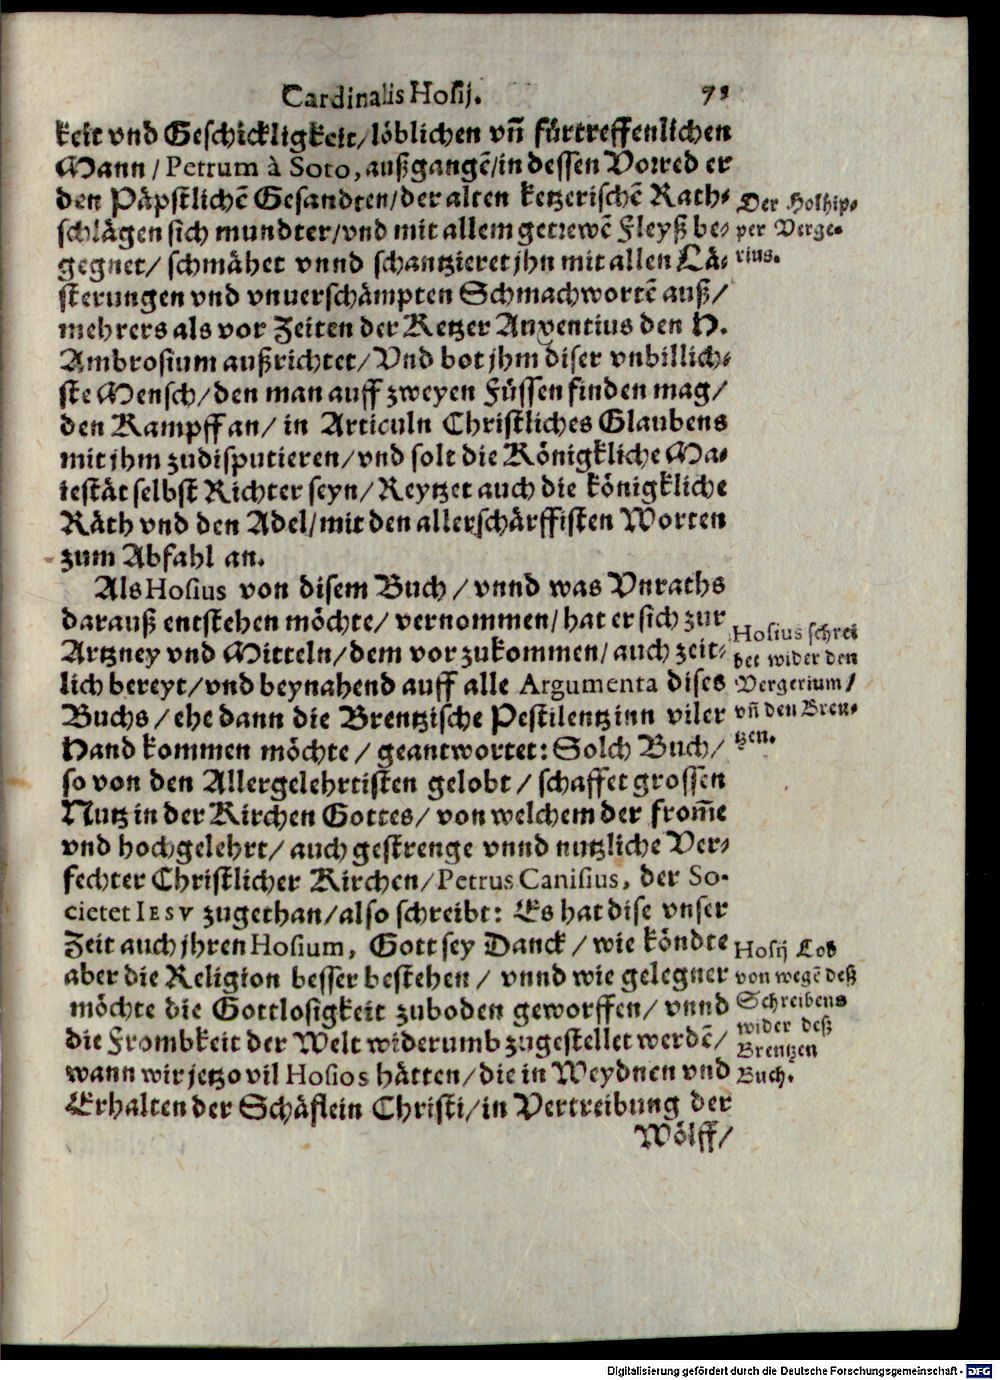 Cardinalis Hosij. 71
keit vnd Geschickligkeit/löblichen vñ fürtreffenlichen
Mann/Petrum à Soto, außgangẽ/in dessen Vorred er
den Päpstlichẽ Gesandten/der alten ketzerischẽ Rath-
schlägen sich mundter/vnd mit allem getrewẽ Fleyß be-
gegnet/ schmähet vnnd schantzieret jhn mit allen Lä-
sterungen vnd vnuerschämpten Schmachwortẽ auß/
mehrers als vor Zeiten der Ketzer Auxentius den H.
Ambrosium außrichtet/Vnd bot jhm diser vnbillich-
ste Mensch/den man auff zweyen Füssen finden mag/
den Kampff an/ in Articuln Christliches Glaubens
mit jhm zudisputieren/vnd solt die Königkliche Ma-
iestät selbst Richter seyn/Reytzet auch die königkliche
Räth vnd den Adel/mit den allerschärffisten Worten
zum Abfahl an.
Der Holhip-
per Verge-
rius.
Als Hosius von disem Buch/vnnd was Vnraths
darauß entstehen möchte/ vernommen/hat er sich zur
Artzney vnd Mitteln/dem vor zukommen/auch zeit-
lich bereyt/vnd beynahend auff alle Argumenta dises
Buchs/ehe dann die Brentzische Pestilentz inn viler
Hand kommen möchte/geantwortet: Solch Buch/
so von den Allergelehrtisten gelobt/schaffet grossen
Nutz in der Kirchen Gottes/von welchem der from̃e
vnd hochgelehrt/auch gestrenge vnnd nutzliche Ver-
fechter Christlicher Kirchen/Petrus Canisius, der So-
cietet IESV zugethan/also schreibt: Es hat dise vnser
Zeit auch jhren Hosium, Gott sey Danck/wie köndte
aber die Religion besser bestehen/vnnd wie gelegner
möchte die Gottlosigkeit zuboden geworffen/vnnd
die Frombkeit der Welt widerumb zugestellet werdẽ/
wann wir jetzo vil Hosios hätten/die in Weydnen vnd
Erhalten der Schäflein Christi/in Vertreibung der
Wölff/
Hosius schrei
bet wider den
Vergerium/
vñ den Bren-
tzen.
Hosij Lob
von wegẽ deß
Schreibens
wider deß
Brentzen
Buch.
Digitalisierung gefördert durch die Deutsche Forschungsgemeinschaft - DFG